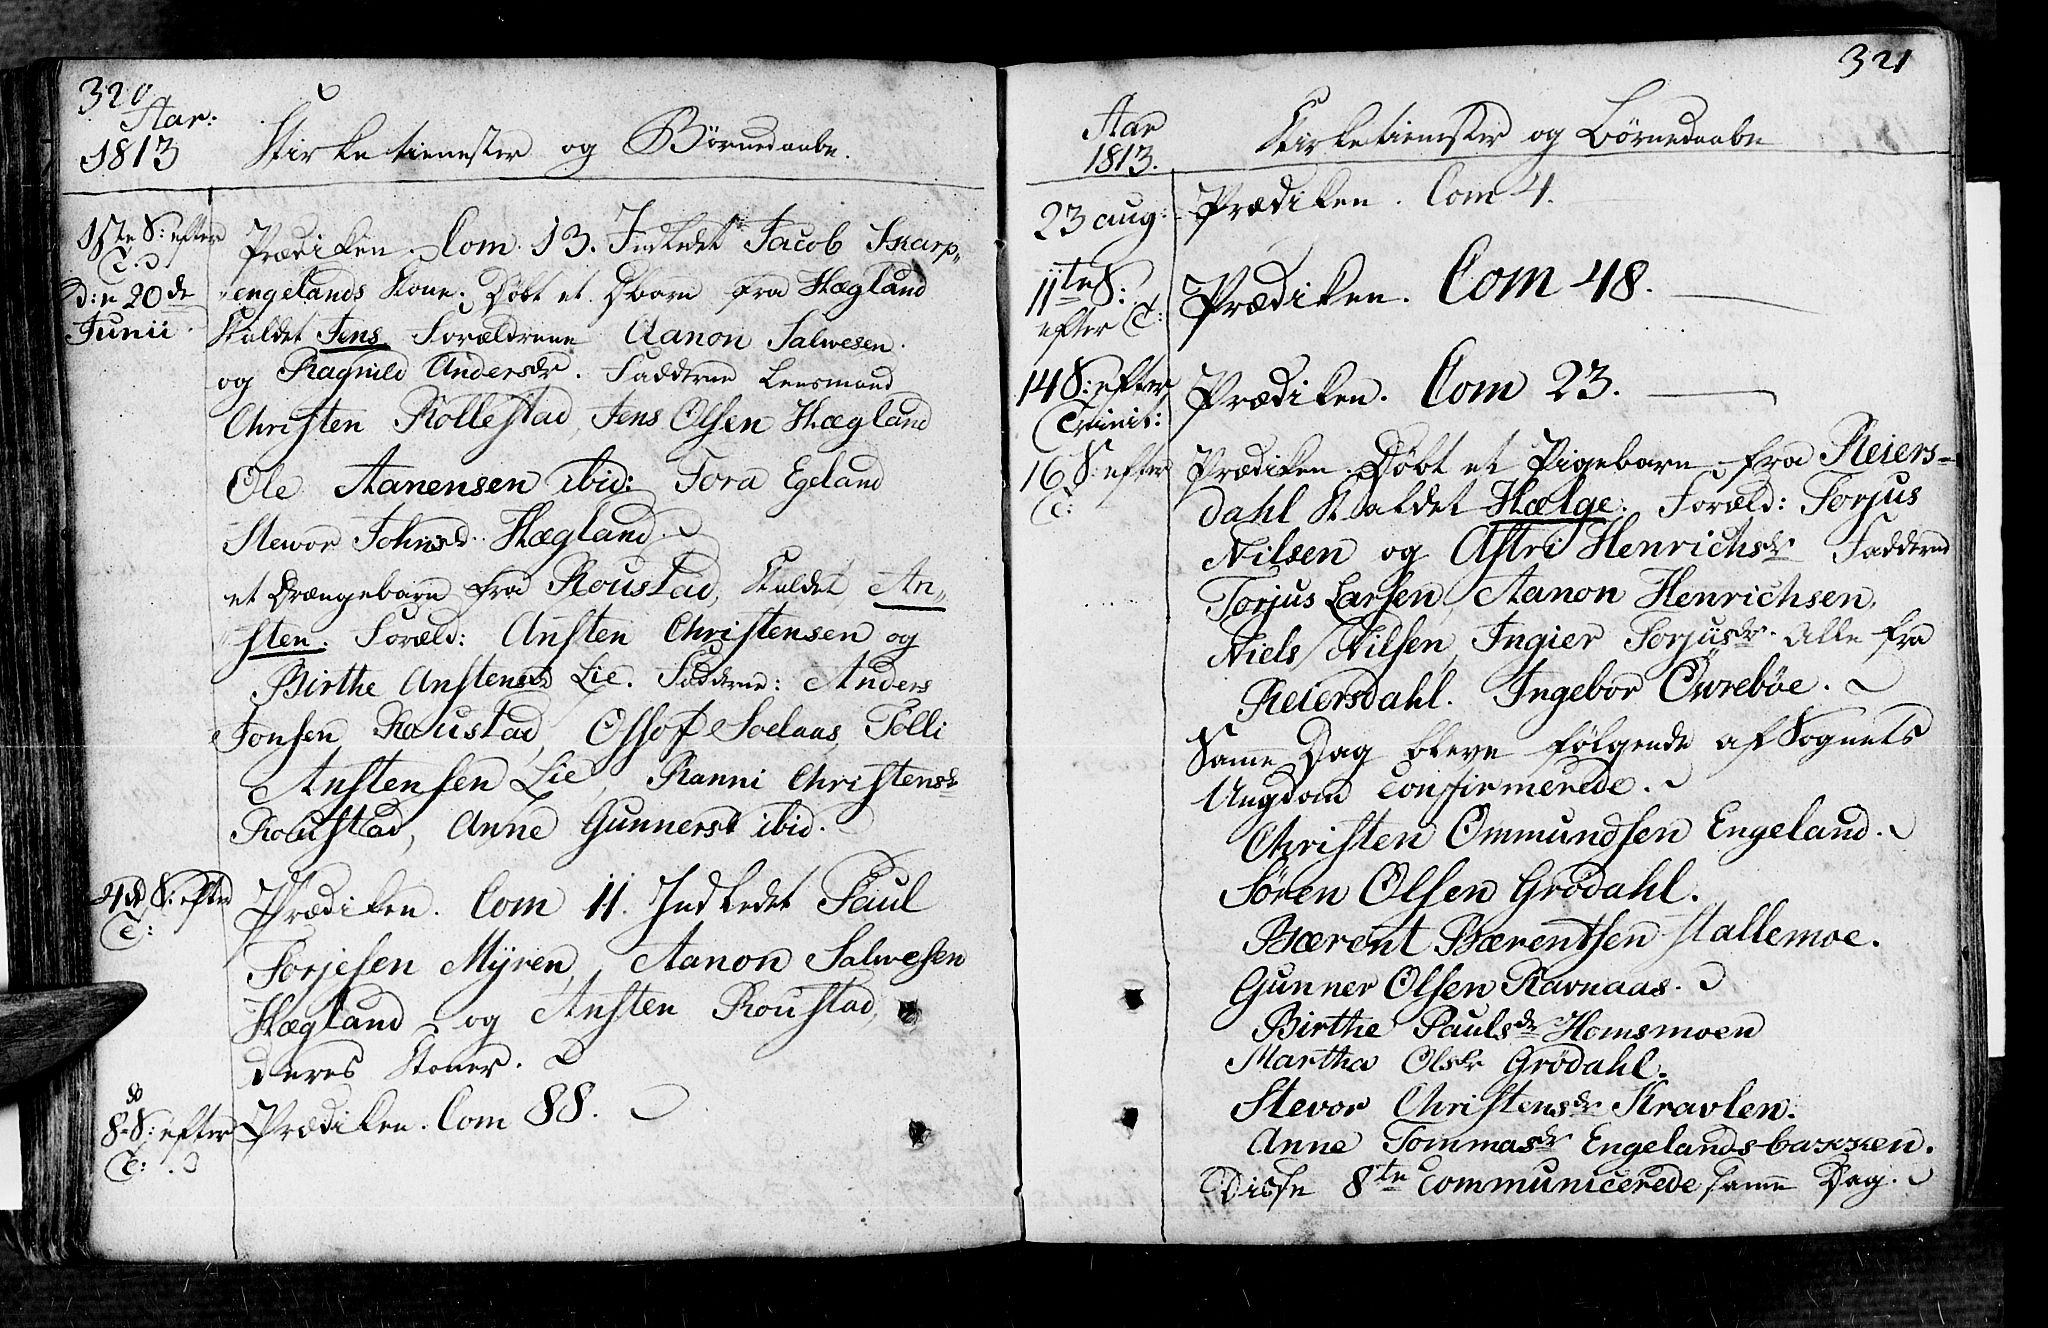 320
Aar:
1813
Kirketienester og Börnedaabe.
1ste S: efter
T:
d: 20de
Junii
Prædiken. Com. 13. Indledt Jacob Skarp„
„engelands Kone; Döbt et Dbarn fra Hægland
Kaldet Jens Forældrene Aanon Salwesen.
og Ragnild Andersdr. Fadderne Lensmand
Christen Rollestad, Jens Olsen Hægland
Ole Aanensen ibid: Tora Egeland
Stewor Johnsd. Hægland.
et Drængebarn fra Roustad, Kaldet An„
sten. Foræld: Ansten Christensen og
Birthe Anstensdr Lie. Fadderne: Anders
Jonsen Roustad, Ossof Soelaas, Tolli
Anstensen Lie, Ranni Christensdr
Roustad, Anne Gunnersd ibid.
4de S: efter
T:
Prædiken. Com 11. Indledt Paul
Torjesen Mÿren, Aanon Salwesen
Hægland og Ansten Roustad,
deres Koner.
8de S: efter
T:
Prædiken. Com 88.
321
Aar
1813.
Kirketienester og Börnedaabe
23 aug:
Prædiken. Com 4.
11te S:
efter T:
Prædiken. Com 48.
14 S: efter
Trinit:
Prædiken. Com 23.
16 S: efter
T:
Prædiken. Döbt et Pigebarn fra Reiers-
dahl Kaldet Hælge. Foræld: Torjus
Nilsen og Astri Henrichsdr Fadderne
Torjus Larsen, Aanon Henrichsen,
Niels Nilsen, Ingier Torjusdr. alle fra
Reiersdahl. Ingebor Öwreböe.
Samme Dag bleve fölgende af Sognets
Ungdom confirmerede.
Christen Ommundsen Engeland.
Sören Olsen Grödahl.
Bærent Bærentsen Stallemoe.
Gunner Olsen Ravnaas.
Birthe Paulsdr Homsmoen
Martha Olsdr Grödahl.
Stevor Christensdr Kravlen.
Anne Tommasdr Engelandsbakken.
Disse 8te Communicerede samme Dag.